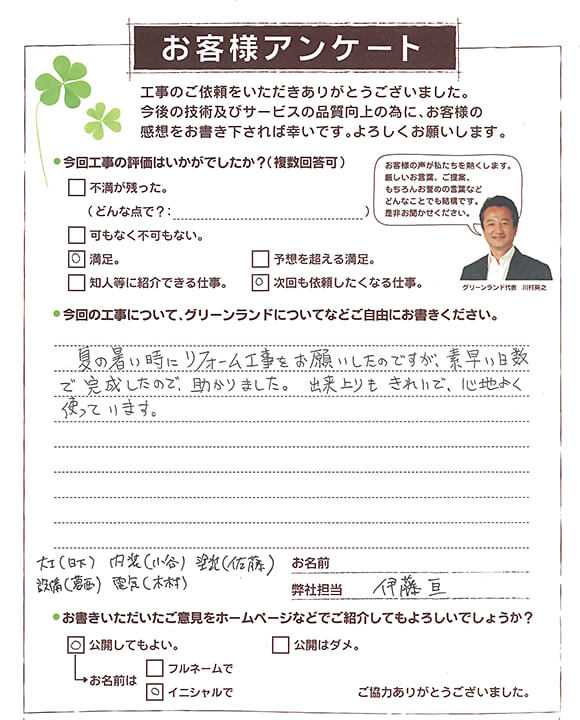 お客様アンケート
工事のご依頼をいただきありがとうございました。
今後の技術及びサービスの品質向上の為に、お客様の
感想をお書き下されば幸いです。よろしくお願いします。
●今回工事の評価はいかがでしたか?(複数回答可)
不満が残った。
(どんな点で?: )
可もなく不可もない。
満足。 予想を超える満足。
知人等に紹介できる仕事。 次回も依頼したくなる仕事。
お客様の声が私たちを熱くします。
厳しいお言葉、ご提案、
もちろんお誉めの言葉など
どんなことでも結構です。
是非お聞かせください。
グリーンランド代表 川村英之
●今回の工事について、グリーンランドについてなどご自由にお書きください。
夏の暑い時にリフォーム工事をお願いしたのですが、素早い日数
で完成したので、助かりました。出来上りもきれいで、心地よく
使っています。
大工(日下) 内装(小谷) 塗装(佐藤)
設備(葛西) 電気(木村)
お名前
弊社担当 伊藤 亘
●お書きいただいたご意見をホームページなどでご紹介してもよろしいでしょうか?
公開してもよい。 公開はダメ。
お名前は フルネームで
イニシャルで
ご協力ありがとうございました。